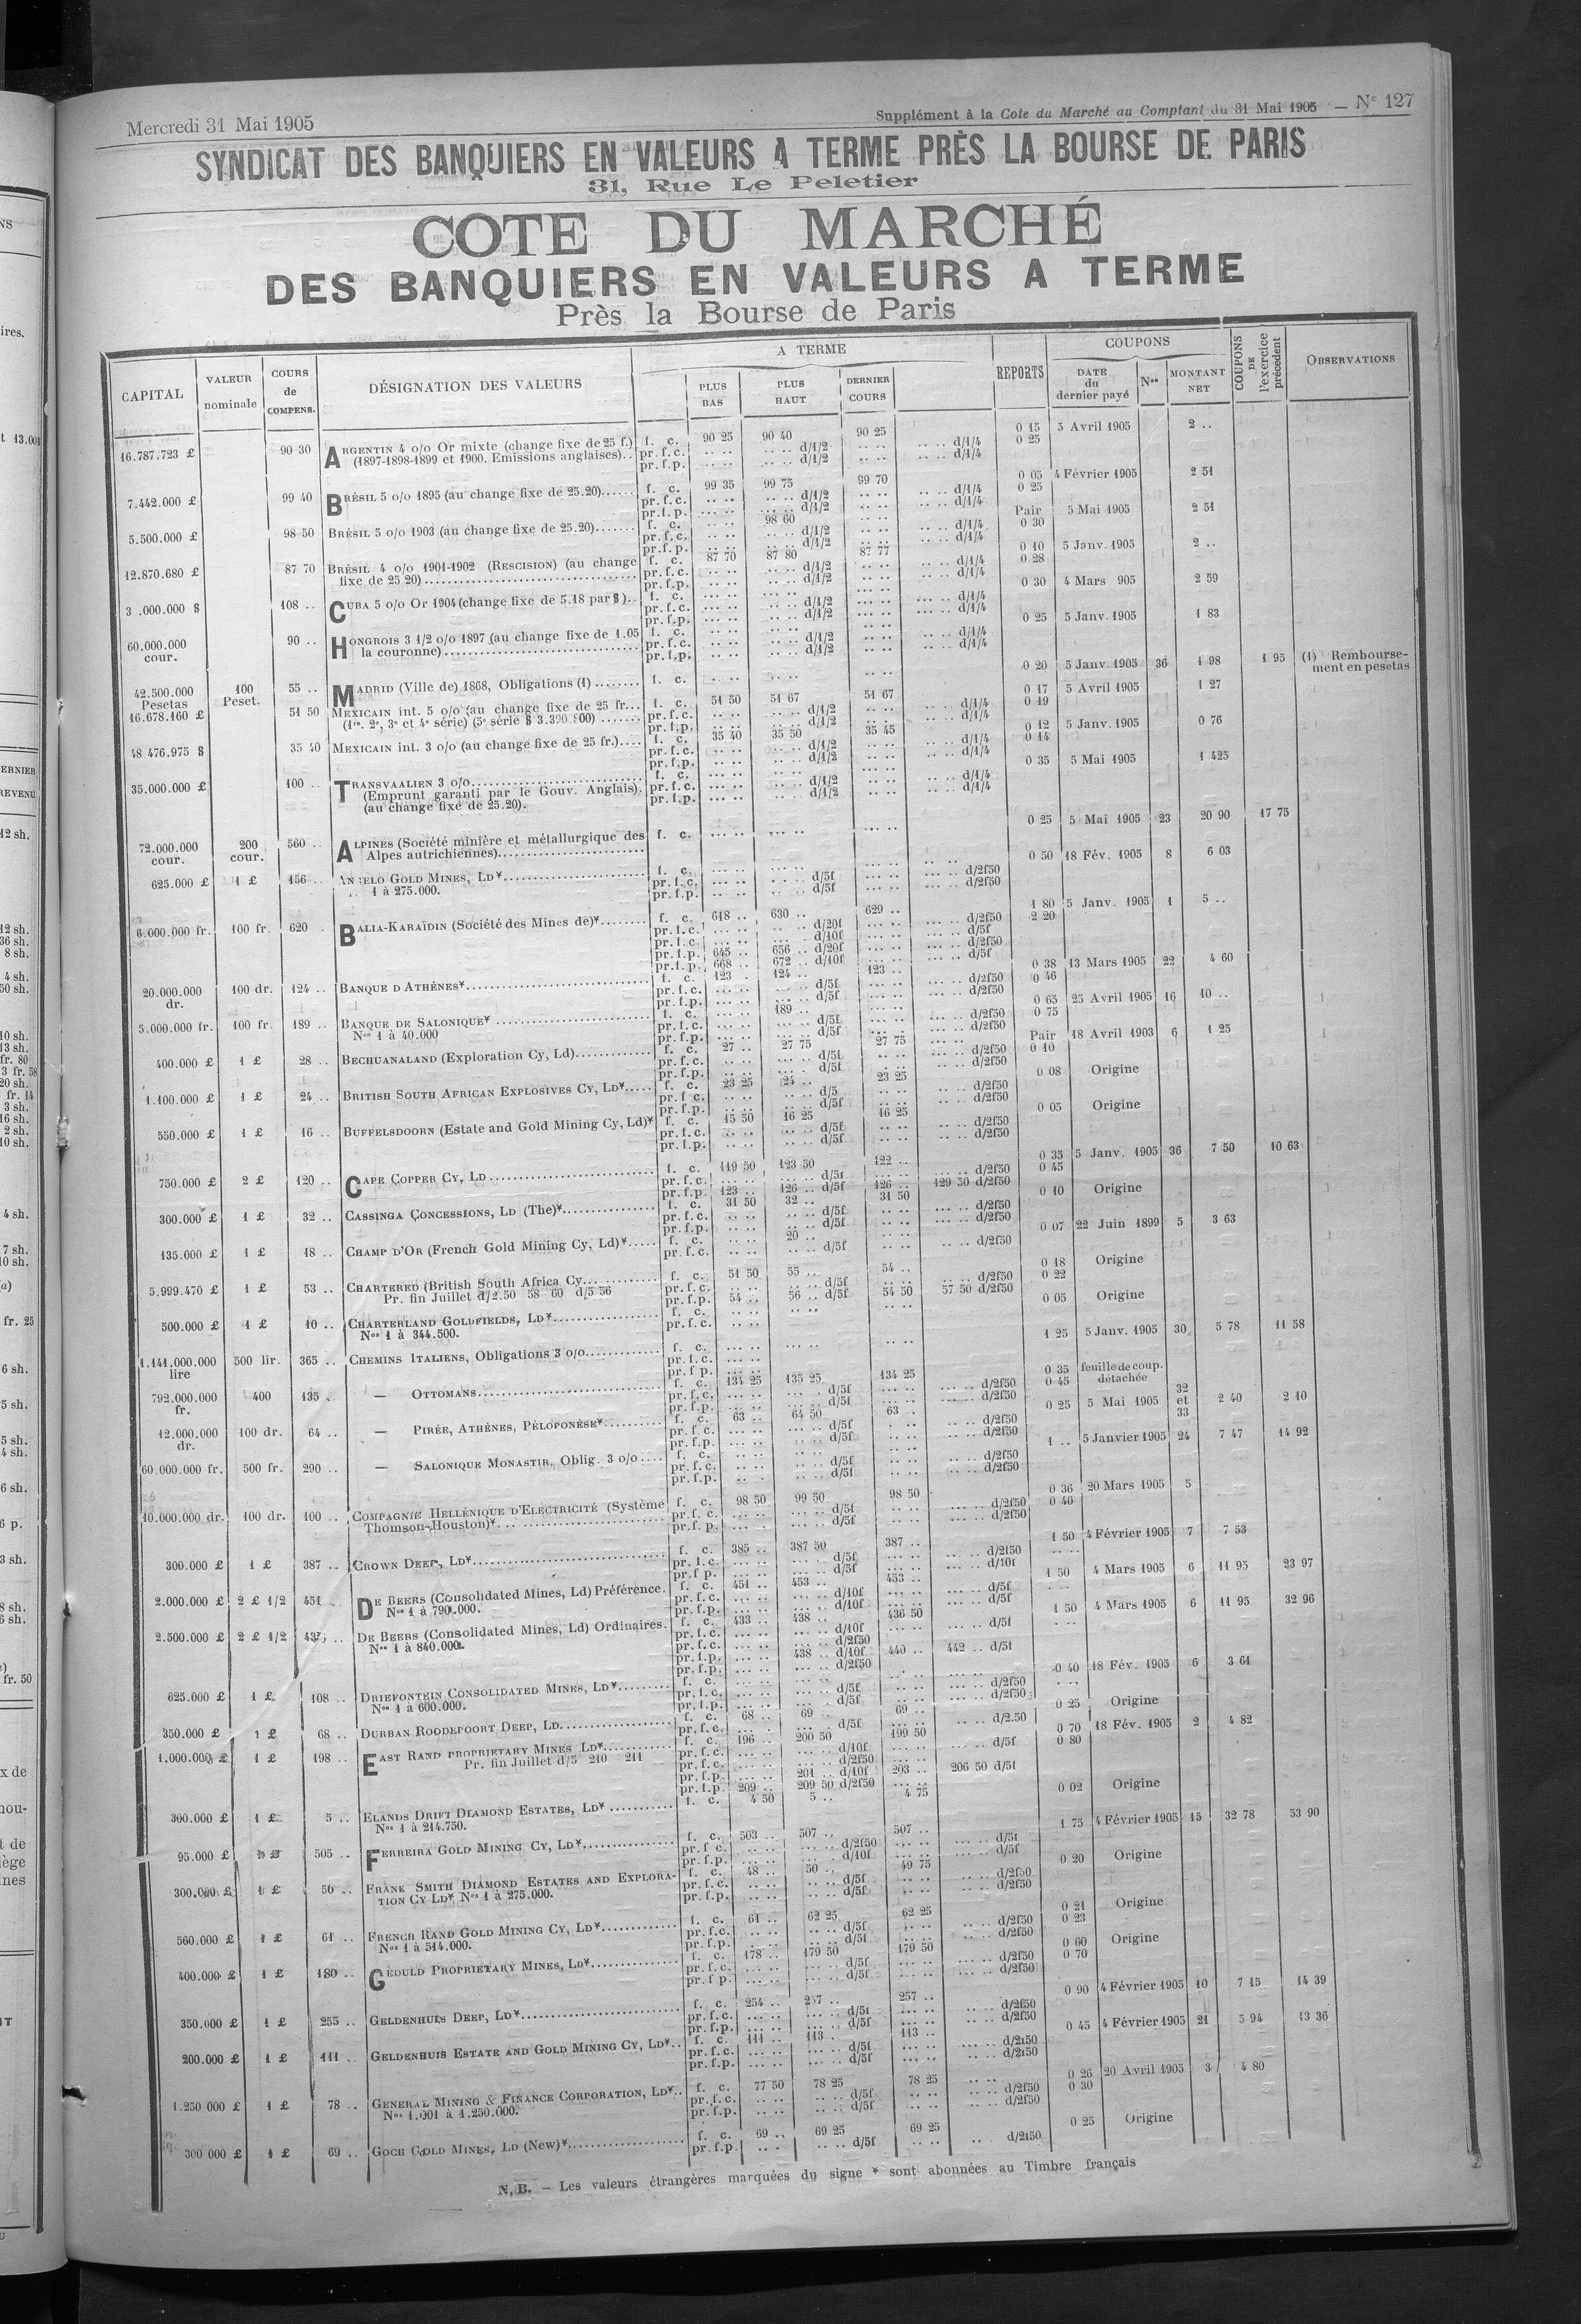 Mercredi 31 Mai 1905
Supplément à la Cote du Marché au Comptant du 31 Mai 1905 — Nº 127
SYNDICAT DES BANQUIERS EN VALEURS A TERME PRÈS LA BOURSE DE PARIS
31, Rue Le Peletier
COTE DU MARCHÉ
DES BANQUIERS EN VALEURS A TERME
Près la Bourse de Paris
CAPITAL VALEUR nominale COURS de COMPENS. DÉSIGNATION DES VALEURS A TERME PLUS BAS PLUS HAUT DERNIER COURS REPORTS COUPONS DATE du dernier payé Nos MONTANT NET COUPONS DE l'exercice précédent OBSERVATIONS
16.787.723 £ 90 30 ARGENTIN 4 o/o Or mixte (change fixe de 25 f.) f. c. 90 25 90 40 90 25 0 15 5 Avril 1905 2 ..
(1897-1898-1899 et 1900. Emissions anglaises).. pr.f.c. d/1/2 d/1/4 0 25
pr.f.p. d/1/2 d/1/4
7.442.000 £ 99 40 BRÉSIL 5 o/o 1895 (au change fixe de 25.20) f. c. 99 35 99 75 99 70 0 05 4 Février 1905 2 51
pr.f.c. d/1/2 d/1/4 0 25
pr.f.p. d/1/2 d/1/4
5.500.000 £ 98 50 BRÉSIL 5 o/o 1903 (au change fixe de 25.20) f. c. 98 60 Pair 5 Mai 1905 2 51
pr.f.c. d/1/2 d/1/4 0 30
pr.f.p. d/1/2 d/1/4
12.870.680 £ 87 70 BRÉSIL 4 o/o 1901-1902 (RESCISION) (au change f. c. 87 70 87 80 87 77 0 10 5 Janv. 1905 2 ..
fixe de 25 20) pr.f.c. d/1/2 d/1/4 0 28
pr.f.p. d/1/2 d/1/4
108 .. CUBA 5 o/o Or 1904 (change fixe de 5.18 par $) f. c. 0 30 4 Mars 905 2 59
pr.f.c. d/1/2 d/1/4
pr.f.p. d/1/2 d/1/4
60.000.000 cour. 90 .. HONGROIS 3 1/2 o/o 1897 (au change fixe de 1.05 f. c. 0 25 5 Janv. 1905 1 83
la couronne) pr.f.c. d/1/2 d/1/4
pr.f.p. d/1/2 d/1/4
42.500.000 Pesetas 100 Peset. 55 .. MADRID (Ville de) 1868, Obligations (1) f. c. 0 20 5 Janv. 1905 36 1 98 1 95 (1) Remboursement en pesetas
16.678.160 £ 51 50 MEXICAIN int. 5 o/o (au change fixe de 25 fr. f. c. 51 50 51 67 51 67 0 17 5 Avril 1905 1 27
(1re, 2e, 3e et 4e série) (5e série $ 3.390.800) pr.f.c. d/1/2 d/1/4 0 19
pr.f.p. d/1/2 d/1/4
48 476.975 $ 35 40 MEXICAIN int. 3 o/o (au change fixe de 25 fr.) f. c. 35 40 35 50 35 45 0 12 5 Janv. 1905 0 76
pr.f.c. d/1/2 d/1/4 0 14
pr.f.p. d/1/2 d/1/4
35.000.000 £ 100 .. TRANSVAALIEN 3 o/o f. c. 0 35 5 Mai 1905 1 425
(Emprunt garanti par le Gouv. Anglais). pr.f.c. d/1/2 d/1/4
(au change fixe de 25.20). pr.f.p. d/1/2 d/1/4
72.000.000 cour. 200 cour. 560 .. ALPINES (Société minière et métallurgique des f. c. 0 25 5 Mai 1905 23 20 90 17 75
Alpes autrichiennes)
625.000 £ 1 £ 156 .. ANGELO GOLD MINES, LD* f. c. 0 50 18 Fév. 1905 8 6 03
1 à 275.000. pr.f.c. d/5f d/2f50
pr.f.p. d/5f d/2f50
6.000.000 fr. 100 fr. 620 BALIA-KARAÏDIN (Société des Mines de)* f. c. 618 .. 630 .. 629 .. 1 80 5 Janv. 1905 1 5 ..
pr.f.c. d/20f d/2f50 2 20
pr.f.c. d/10f d/5f
pr.f.p. 645 .. 656 .. d/20f d/2f50
pr.f.p. 668 .. 672 .. d/10f d/5f
20.000.000 dr. 100 dr. 124 .. BANQUE D'ATHÈNES* f. c. 123 . 124 .. 123 .. 0 38 13 Mars 1905 22 4 60
pr.f.c. d/5f d/2f50 0 46
pr.f.p. d/5f d/2f50
5.000.000 fr. 100 fr. 189 .. BANQUE DE SALONIQUE* f. c. 189 .. 0 65 25 Avril 1905 16 10 ..
Nos 1 à 40.000 pr.f.c. d/5f d/2f50 0 75
pr.f.p. d/5f d/2f50
400.000 £ 1 £ 28 .. BECHUANALAND (Exploration Cy, Ld) f. c. 27 .. 27 75 27 75 Pair 18 Avril 1903 6 1 25
pr.f.c. d/5f d/2f50 0 10
pr.f.p. d/5f d/2f50
1.100.000 £ 1 £ 24 .. BRITISH SOUTH AFRICAN EXPLOSIVES CY, LD* f. c. 23 25 24 .. 23 25 0 08 Origine
pr.f.c. d/5 d/2f50
pr.f.p. d/5f d/2f50
550.000 £ 1 £ 16 .. BUFFELSDOORN (Estate and Gold Mining Cy, Ld)* f. c. 15 50 16 25 16 25 0 05 Origine
pr.f.c. d/5f d/2f50
pr.f.p. d/5f d/2f50
750.000 £ 2 £ 120 .. CAPE COPPER CY, LD f. c. 119 50 123 50 122 .. 0 35 5 Janv. 1905 36 7 50 10 63
pr.f.c. d/5f d/2f50 0 45
pr.f.p. 123 .. 126 .. d/5f 126 .. 129 50 d/2f50
300.000 £ 1 £ 32 .. CASSINGA CONCESSIONS, LD (The)* f. c. 31 50 32 .. 31 50 0 10 Origine
pr.f.c. d/5f d/2f50
pr.f.p. d/5f d/2f50
135.000 £ 1 £ 18 .. CHAMP D'OR (French Gold Mining Cy, Ld)* f. c. 20 .. 0 07 22 Juin 1899 5 3 63
pr.f.c. d/5f d/2f50
5.999.470 £ 1 £ 53 .. CHARTERED (British South Africa Cy f. c. 51 50 55 .. 54 .. 0 18 Origine
Pr. fin Juillet d/2.50 58 60 d/5 56 pr.f.c. d/5f d/2f50 0 22
pr.f.p. 54 .. 56 .. d/5f 54 50 57 50 d/2f50
500.000 £ 1 £ 10 .. CHARTERLAND GOLDFIELDS, LD* f. c. 0 05 Origine
Nos 1 à 344.500. pr.f.c.
1.141.000.000 lire 500 lir. 365 .. CHEMINS ITALIENS, Obligations 3 o/o f. c. 1 25 5 Janv. 1905 30 5 78 11 58
pr.f.c.
pr.f p.
792.000.000 fr. 400 135 . — OTTOMANS f. c. 134 25 135 25 134 25 0 35 feuille de coup. détachée
pr.f.c. d/5f d/2f50 0 45
pr.f.p. d/5f d/2f50
12.000.000 dr. 100 dr. 64 .. — PIRÉE, ATHÈNES, PÉLOPONÈSE* f. c. 63 .. 64 50 63 . 0 25 5 Mai 1905 32 et 33 2 40 2 10
pr.f.c. d/5f d/2f50
pr.f.p. d/5f d/2f50
60.000.000 fr. 500 fr. 290 .. — SALONIQUE MONASTIR, Oblig. 3 o/o f. c. 1 .. 5 Janvier 1905 24 7 47 14 92
pr.f.c. d/5f d/2f50
pr.f.p. d/5f d/2f50
10.000.000 dr. 100 dr. 100 .. COMPAGNIE HELLÉNIQUE D'ELECTRICITÉ (Système f. c. 98 50 99 50 98 50 0 36 20 Mars 1905 5
Thomson-Houston)* pr.f.c. d/5f d/2f50 0 46
pr.f.p. d/5f d/2f50
300.000 £ 1 £ 387 .. CROWN DEEP, LD* f. c. 385 .. 387 50 387 .. 1 50 4 Février 1905 7 7 53
pr.f.c. d/5f d/2f50
pr.f p. d/5f d/10f
2.000.000 £ 2 £ 1/2 451 .. DE BEERS (Consolidated Mines, Ld) Préférence. f. c. 451 .. 453 .. 453 .. 1 50 4 Mars 1905 6 11 95 23 97
Nos 1 à 790.000. pr.f.c. d/10f d/5f
pr.f.p. d/10f d/5f
2.500.000 £ 2 £ 1/2 DE BEERS (Consolidated Mines, Ld) Ordinaires. f. c. 433 .. 438 .. 436 50 1 50 4 Mars 1905 6 11 95 32 96
Nos 1 à 840.000. pr.f.c. d/10f d/5f
pr.f.c. d/2f50
pr.f.p. 438 .. d/10f 440 .. 442 .. d/5f
pr.f.p. d/2f50
625.000 £ 1 £ 108 .. DRIEFONTEIN CONSOLIDATED MINES, LD* f. c. 0 40 18 Fév. 1905 6 3 61
Nos 1 à 600.000. pr.f.c. d/5f d/2f50
pr.f.p. d/5f d/2f50
350.000 £ 1 £ 68 .. DURBAN ROODEPOORT DEEP, LD f. c. 68 .. 69 .. 69 .. 0 25 Origine
pr.f.c. d/5f d/2.50
1.000.000 £ 1 £ 198 .. EAST RAND PROPRIETARY MINES LD* f. c. 196 .. 200 50 199 50 0 70 18 Fév. 1905 2 4 82
Pr. fin Juillet d/5 210 211 pr.f.c. d/10f d/5f 0 80
pr.f.c. d/2f50
pr.f.p. 201 .. d/10f 203 .. 206 50 d/5f
pr.f.p. 209 .. 209 50 d/2f50
300.000 £ 1 £ 5 .. ELANDS DRIFT DIAMOND ESTATES, LD* f. c. 4 50 5 .. 4 75 0 02 Origine
Nos 1 à 214.750.
95.000 £ 505 .. FERREIRA GOLD MINING CY, LD* f. c. 503 .. 507 .. 507 .. 1 75 4 Février 1905 15 32 78 53 90
pr.f c. d/2f50 d/5f
pr.f.p. d/10f d/5f
300.000 £ 1 £ 50 .. FRANK SMITH DIAMOND ESTATES AND EXPLORA- f. c. 48 .. 50 .. 49 75 0 20 Origine
TION CY LD* Nos 1 à 275.000. pr.f.c. d/5f d/2f50
pr.f.p. d/5f d/2f50
560.000 £ 1 £ 61 .. FRENCH RAND GOLD MINING CY, LD* f. c. 61 .. 62 25 62 25 0 21 Origine
Nos 1 à 514.000. pr.f.c. d/5f d/2f50 0 23
pr.f.p. d/5f d/2f50
400.000 £ 1 £ 180 .. GEDULD PROPRIETARY MINES, LD* f. c. 178 .. 179 50 179 50 0 60 Origine
pr.f.c. d/5f d/2f50 0 70
pr.f p. d/5f d/2f50
350.000 £ 1 £ 255 .. GELDENHUIS DEEP, LD* f. c. 254 .. 257 .. 257 .. 0 90 4 Février 1905 10 7 15 14 39
pr.f.c. d/5f d/2f50
pr.f.p. d/5f d/2f50
200.000 £ 1 £ 111 .. GELDENHUIS ESTATE AND GOLD MINING CY, LD* f. c. 111 .. 113 .. 113 .. 0 45 4 Février 1905 21 5 94 13 36
pr.f.c. d/5f d/2f50
pr.f.p. d/5f d/2f50
1.250 000 £ 1 £ 78 .. GENERAL MINING & FINANCE CORPORATION, LD* f. c. 77 50 78 25 78 25 0 26 20 Avril 1905 3 4 80
Nos 1.001 à 1.250.000. pr.f.c. d/5f d/2f50 0 30
pr.f.p. d/5f d/2f50
300 000 £ 1 £ 69 .. GOCH GOLD MINES, LD (New)* f. c. 69 .. 69 25 69 25 0 25 Origine
pr.f.p. d/5f d/2f50
N. B. — Les valeurs étrangères marquées du signe * sont abonnées au Timbre français